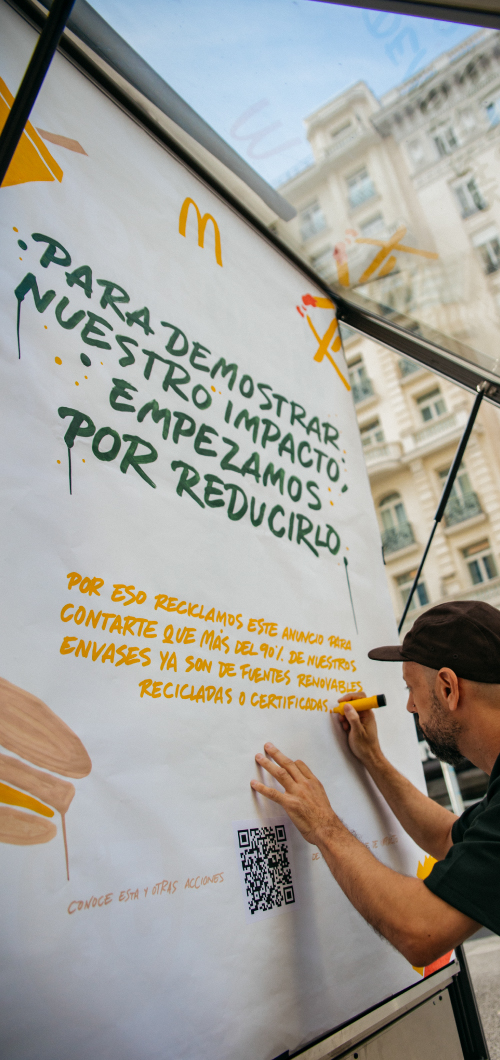 PARA DEMOSTRAR
NUESTRO IMPACTO,
EMPEZAMOS
POR REDUCIRLO.
POR ESO RECICLAMOS ESTE ANUNCIO PARA
CONTARTE QUE MÁS DEL 90% DE NUESTROS
ENVASES YA SON DE FUENTES RENOVABLES,
RECICLADAS O CERTIFICADAS.
CONOCE ESTA Y OTRAS ACCIONES